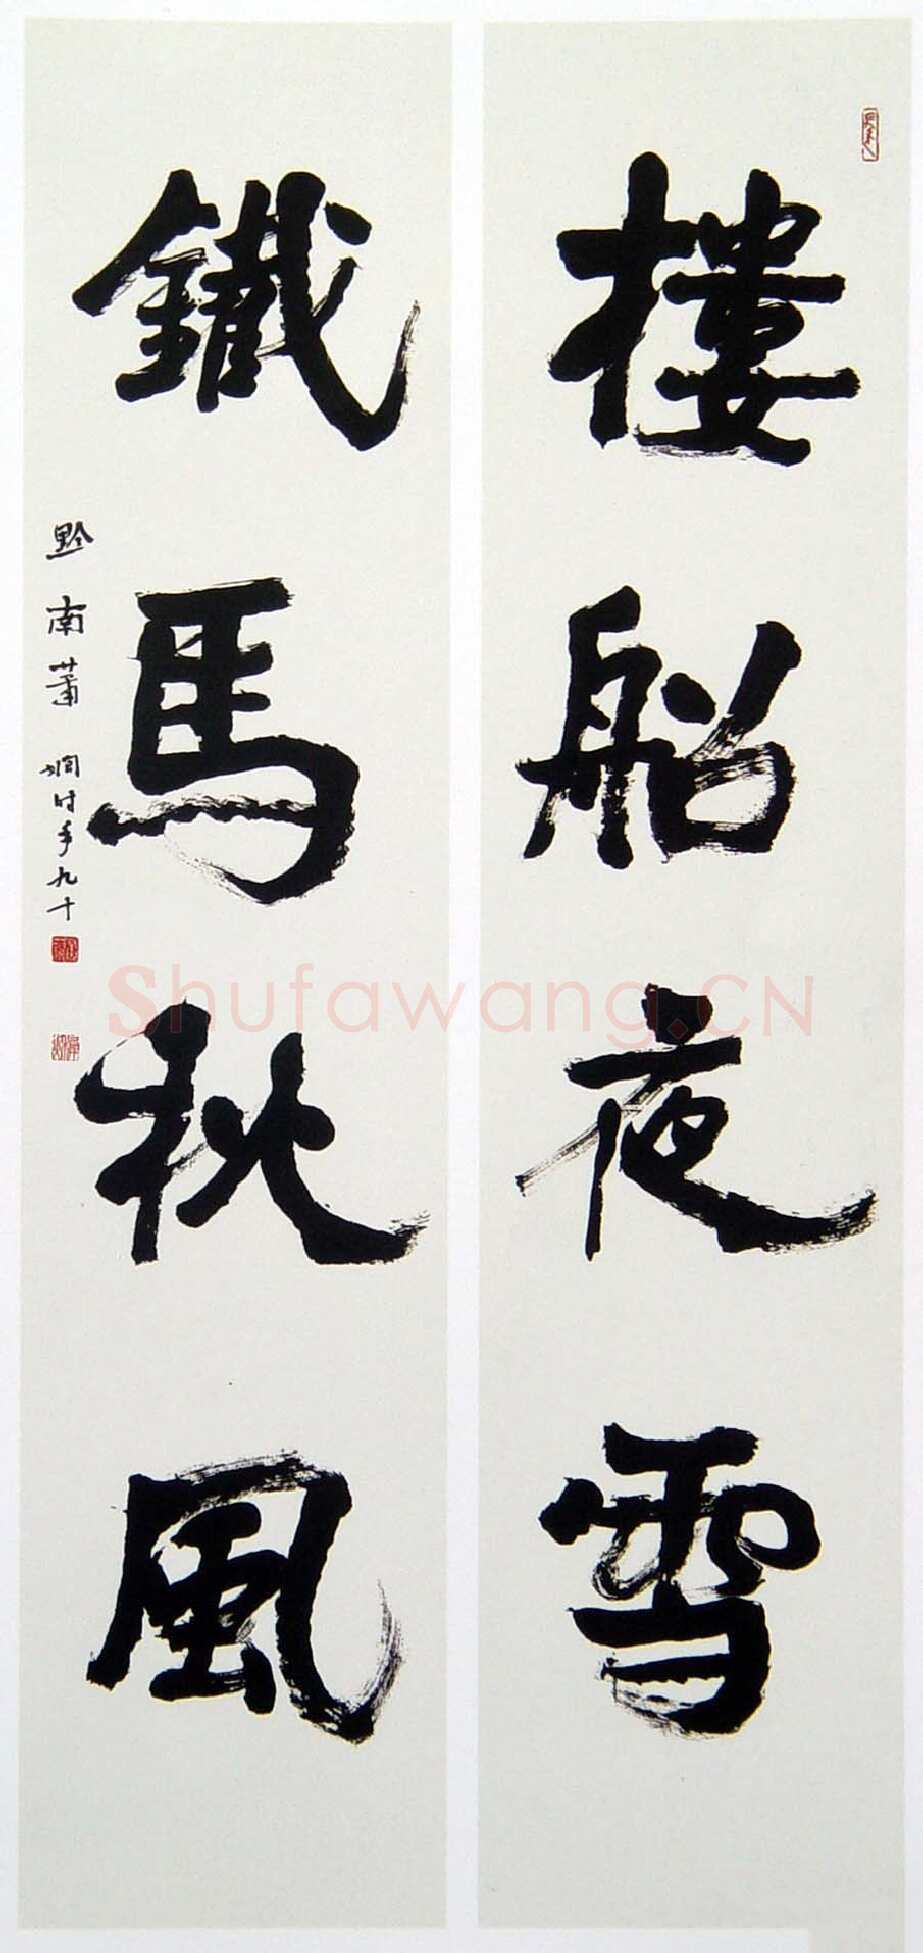 樓船夜雪
鐵馬秋風
黔南蕭嫻时年九十
Shufawang.CN